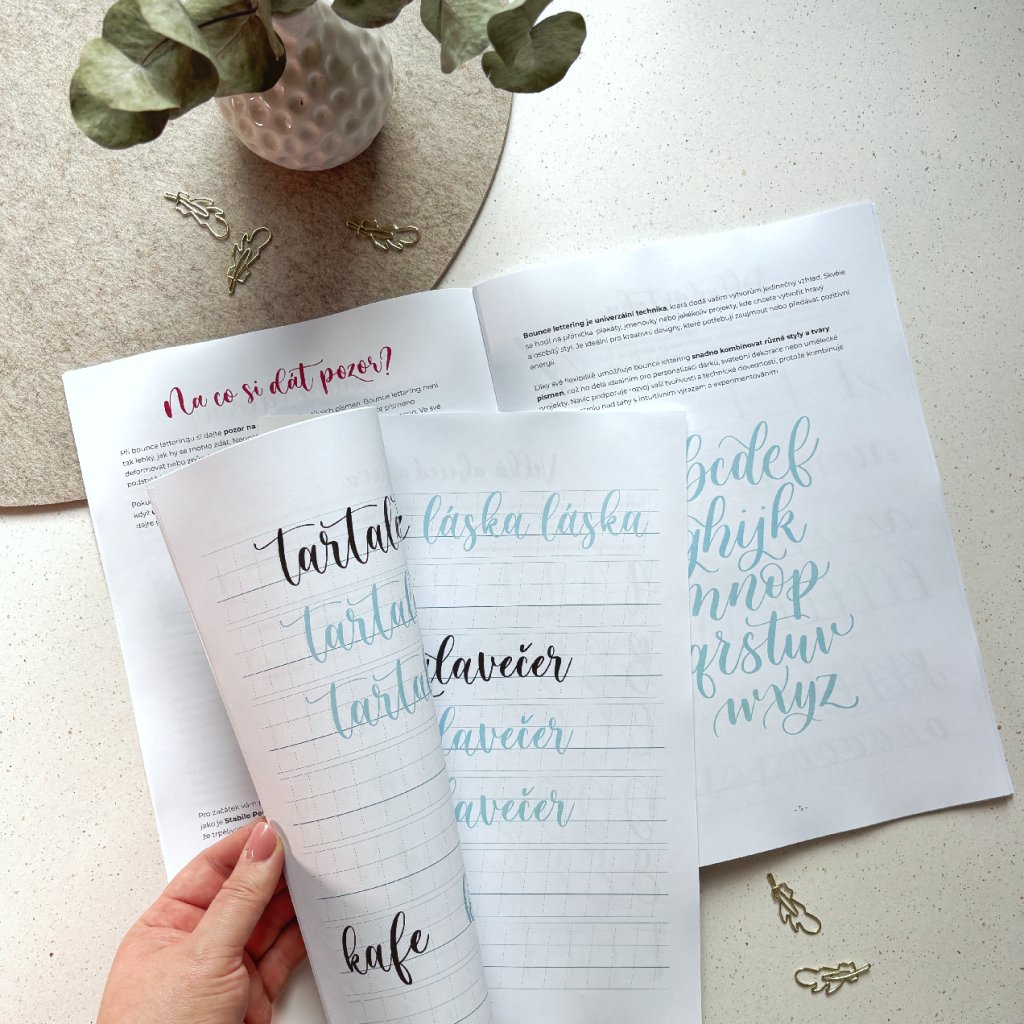 Na co si dát pozor?
Při bounce letteringu si dejte pozor na
písmen. Bounce lettering není
tak lehký, jak by se mohlo zdát.
deformovat nebo
Pro začátek vám
jako je Stabilo
že trpělivos
Bounce lettering je univerzální technika, která dodá vašim výtvorům jedinečný vzhled. Skvěle
se hodí na přáníčka, plakáty, jmenovky nebo jakékoliv projekty, kde chcete vytvořit hravý
a osobitý styl. Je ideální pro kreativní designy, které potřebují zaujmout nebo předávat pozitivní
energii.
Díky své flexibilitě umožňuje bounce lettering snadno kombinovat různé styly a tvary
písmen, což ho dělá ideálním pro personalizaci dárků, svatební dekorace nebo umělecké
projekty. Navíc podporuje rozvoj vaší tvořivosti a technické dovednosti, protože kombinuje
nad tahy s intuitivním výrazem a experimentováním.
bcdef
ghijk
mnop
qrstuv
wxyz
- 5 -
tartale
tartal
tarta
kafe
láska láska
lavečer
lavečer
lavečer